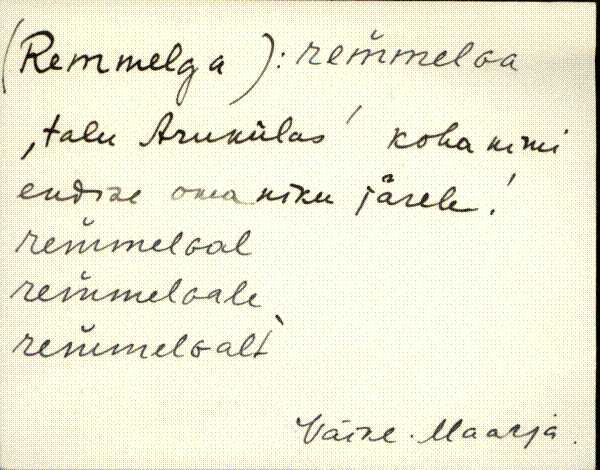 (Remmelga): rem̆melɢa
‚talu Arukülas’ kohanimi
endise omaniku järele!
rem̆melɢal
rem̆melɢale
rem̆melɢalt
Väike-Maarja.